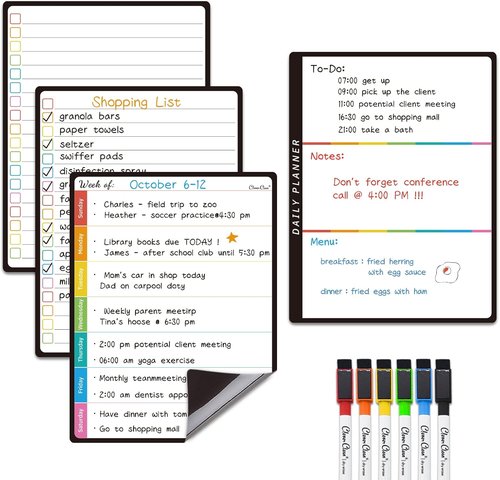 Shopping List
granola bars
paper towels
seltzer
swiffer pads
disinfection spray
Week of: October 6-12
Sunday
· Charles - field trip to zoo
· Heather - soccer practice#4:30 pm
Monday
· Library books due TODAY !
· James - after school club until 5:30 pm
Tuesday
· Mom's car in shop today
Dad on carpool daty
Wednesday
· Weekly parent meetirp
Tina's hoose # 6:30 pm
Thursday
· 2:00 pm potential client meeting
· 06:00 am yoga exercise
Friday
· Monthly teanmeeting
· 2:00 am dentist appo
Saturday
· Have dinner with tom
· Go to shopping mall
DAILY PLANNER
To-Do:
07:00 get up
09:00 pick up the client
11:00 potential client meeting
16:30 go to shopping mall
21:00 take a bath
Notes:
Don't forget conference
call @ 4:00 PM !!!
Menu:
breakfast : fried herring
with egg sauce
dinner : fried eggs with ham